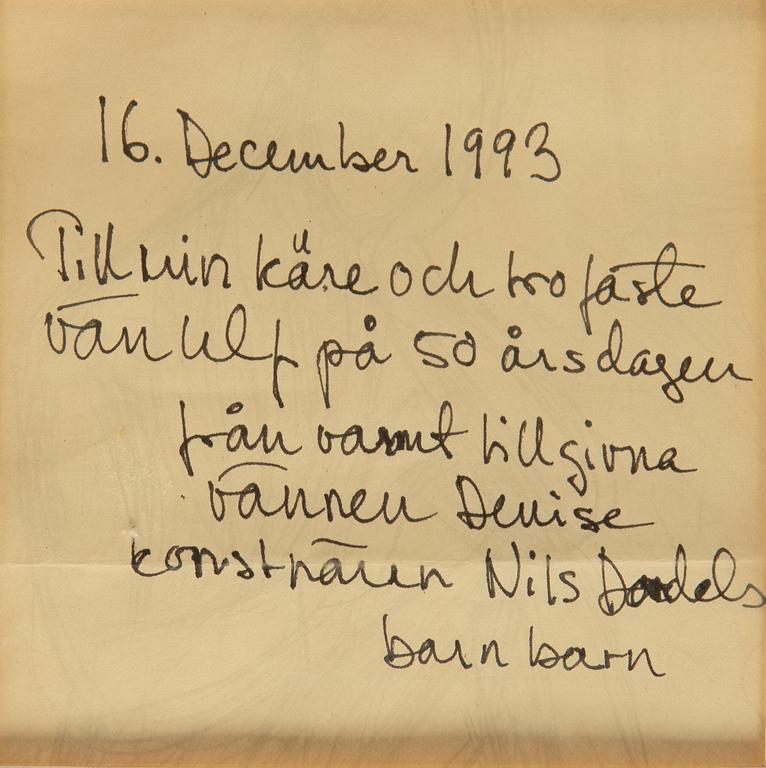 16. December 1993
Till min käre och trofaste
vän Ulf på 50 årsdagen
från varmt tillgivna
vännen Denise
konstnären Nils Dardels
barnbarn